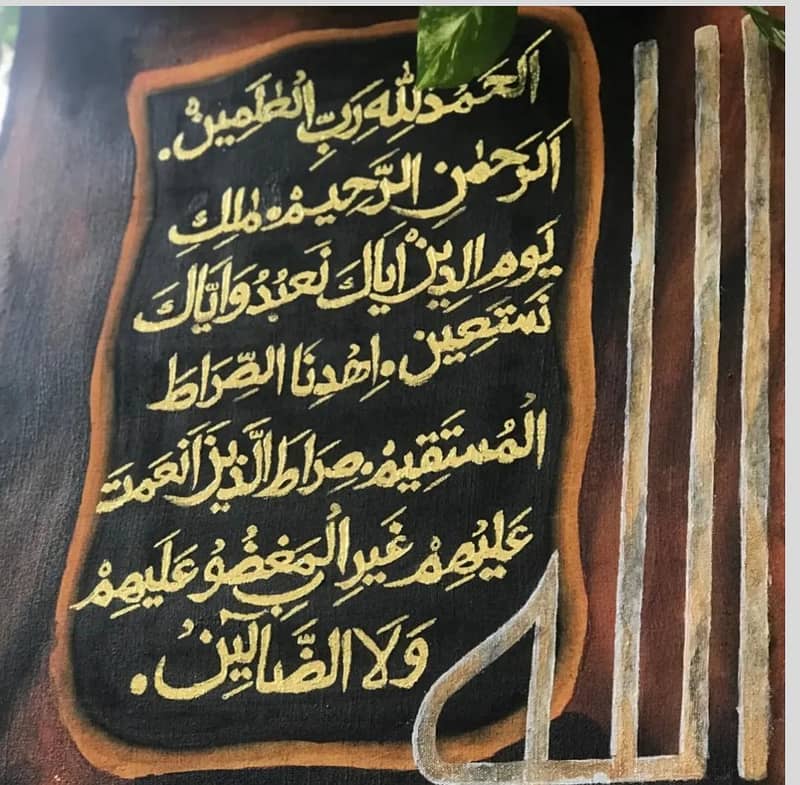 اَلحَمدُ لِلّٰهِ رَبِّ الْعٰلَمِينْ.
اَلرَحمٰنِ الرَّحِيمْ. مٰلِكِ
يَومِ الدِينْ اِيَاكَ نَعبُدُ وَاِيَّاكَ
نَستَعِين. اِهْدِنَا الصِّرَاطَ
الْمُستَقِيمْ. صِرَاطَ الَّذِينَ اَنعَمتَ
عَلَيْهِمْ غَيرِ الْمَغضُوبِ عَلَيهِمْ
وَلَا الضَّالِّينْ.
الله